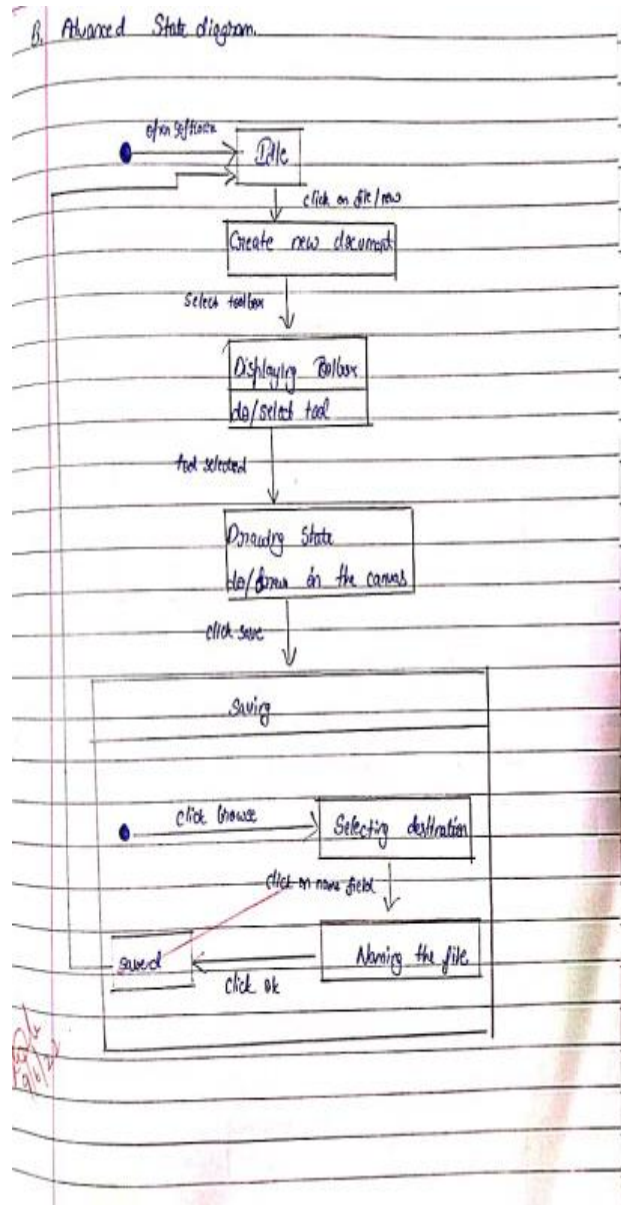 B. Advanced State diagram.
open software
Idle
click on file/new
Create new document
Select toolbox
Displaying Toolbox
do/select tool
tool selected
Drawing State
do/draw in the canvas
click save
Saving
click browse
Selecting destination
click on name field
saved
Naming the file
click ok